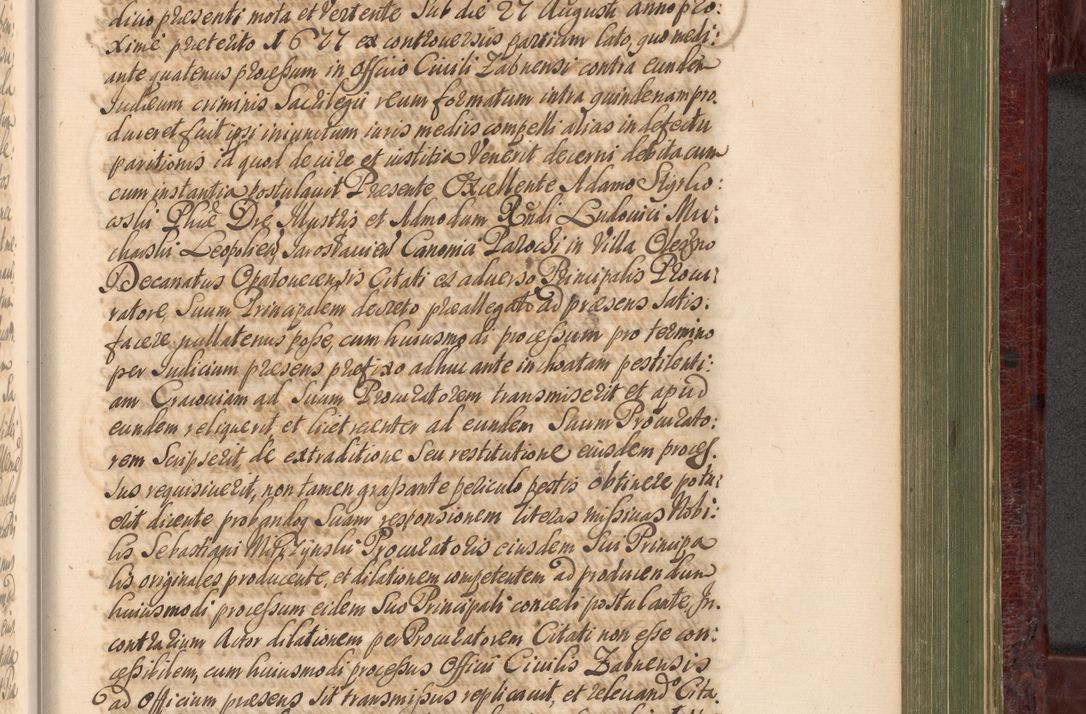 dicio præsenti mota et vertente Sub die 27 Augusti anno pro:
xime præterito 1677 ex controversiis partium lato, quo medi:
ante quatenus processum in Officio Civili Zabnensi contra eunden
Judæum criminis Sacrilegii reum formatum intra quindenam pro.
duceret fuit ipsi iniunctum iuris mediis compelli alias in defectu
paritionis id quod de iure et iustitia Venerit decerni debita cum
cum instantia postulavit Præsente Excellente Adamo Sigrlio:
wski Phiæ Dre, Illustris et Admodum Rndi Ludovici Mu:
charski Leopolien Jaroslavien Canonici Parochi in Villa
Decanatus Opatovecensis Citati ex adverso Principalis Procu:
ratore, Suum Principalem decreto præallegato ad præsens Satis:
facere nullatenus posse, cum huiusmodi processum pro termino
per Judicium præsens præfixo adhuc ante inchoatam pestilenti:
am Cracoviam ad Suum Procuratorem transmiserit et apud
eundem reliquerit et licet recenter ad eundem Suum Procurato:
rem Scripserit de extraditione Seu restitutione eiusdem proces.
sus requisiverit, non tamen grassante periculo pestis obtinere potu:
erit dicente probandoq Suam responsionem literas missivas Nobi:
lis Sebastiani Procuratoris eiusdem Sui Principa
lis originales producente, et dilationem competentem ad producendum
huiusmodi processum eidem Suo Principali concedi postulante, In
contrarium Actor dilationem per Procuratorem Citati non esse con:
cessibilem, cum huiusmodi processus Officii Civilis Zabnensis
ad Officium præsens sit transmissus replicavit, et relevand Cita